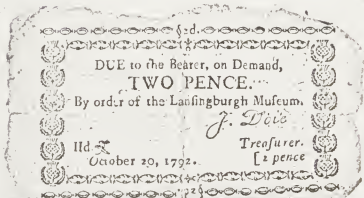 §2d.
DUE to the Bearer, on Demand,
TWO PENCE.
By order of the Lansingburgh Museum.
IId.
Treasurer.
October 20, 1792.
[2 pence